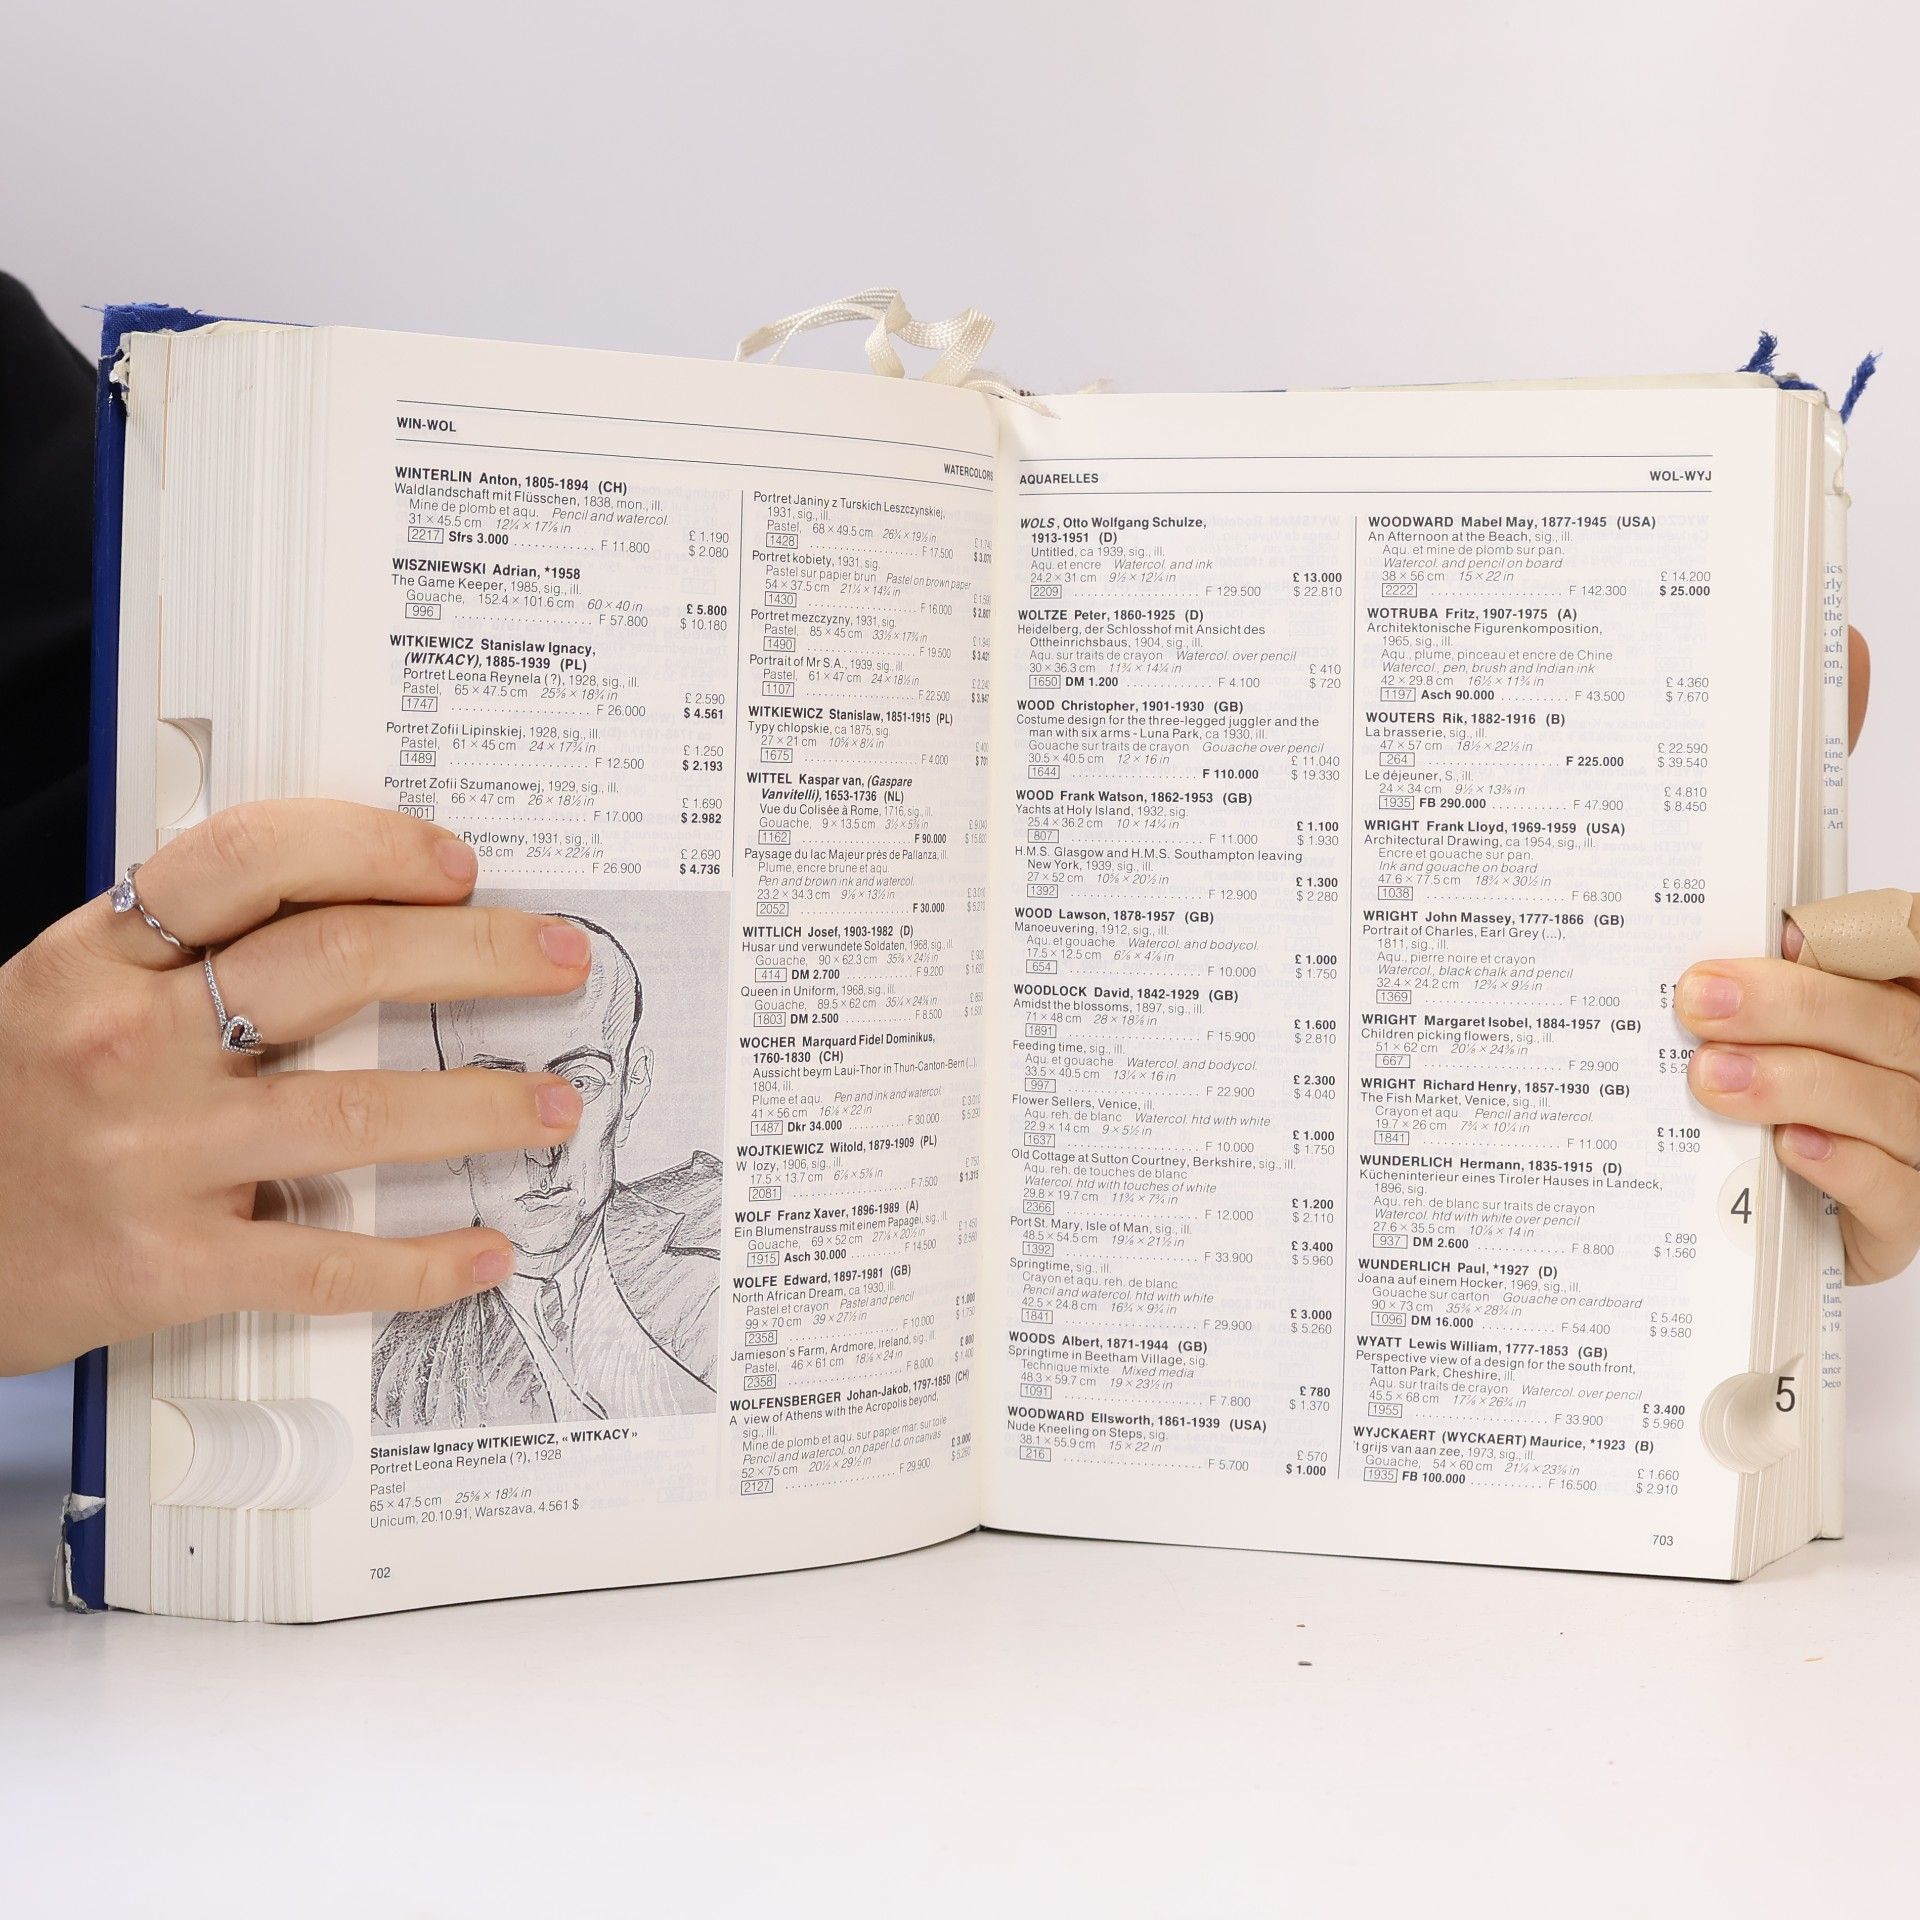 WIN-WOL
WATERCOLORS
WINTERLIN Anton, 1805-1894 (CH)
Waldlandschaft mit Flüsschen, 1838, mon., ill.
Mine de plomb et aqu. Pencil and watercol.
31 × 45.5 cm 12¼ × 17⅞ in £ 1.190
2217 Sfrs 3.000 ............ F 11.800 $ 2.080
WISZNIEWSKI Adrian, *1958
The Game Keeper, 1985, sig., ill.
Gouache, 152.4 × 101.6 cm 60 × 40 in £ 5.800
996 .................... F 57.800 $ 10.180
WITKIEWICZ Stanislaw Ignacy,
(WITKACY), 1885-1939 (PL)
Portret Leona Reynela (?), 1928, sig., ill.
Pastel, 65 × 47.5 cm 25⅝ × 18¾ in £ 2.590
1747 .................... F 26.000 $ 4.561
Portret Zofii Lipinskiej, 1928, sig., ill.
Pastel, 61 × 45 cm 24 × 17¾ in £ 1.250
1489 .................... F 12.500 $ 2.193
Portret Zofii Szumanowej, 1929, sig., ill.
Pastel, 66 × 47 cm 26 × 18½ in £ 1.690
2001 .................... F 17.000 $ 2.982
Rydlowny, 1931, sig., ill.
58 cm 25¼ × 22⅞ in £ 2.690
F 26.900 $ 4.736
Stanislaw Ignacy WITKIEWICZ, «WITKACY»
Portret Leona Reynela (?), 1928
Pastel
65 × 47.5 cm 25⅝ × 18¾ in
Unicum, 20.10.91, Warszava, 4.561 $
702
Portret Janiny z Turskich Leszczynskiej,
1931, sig., ill.
Pastel, 68 × 49.5 cm 26¾ × 19½ in
1428 .................... F 17.500
Portret kobiety, 1931, sig.
Pastel sur papier brun Pastel on brown paper
54 × 37.5 cm 21¼ × 14¾ in
1430 .................... F 16.000
Portret mezczyzny, 1931, sig.
Pastel, 85 × 45 cm 33½ × 17¾ in
1490 .................... F 19.500
Portrait of Mr S.A., 1939, sig., ill.
Pastel, 61 × 47 cm 24 × 18½ in
1107 .................... F 22.500
WITKIEWICZ Stanislaw, 1851-1915 (PL)
Typy chlopskie, ca 1875, sig.
27 × 21 cm 10⅝ × 8¼ in
1675 .................... F 4.000
WITTEL Kaspar van, (Gaspare
Vanvitelli), 1653-1736 (NL)
Vue du Colisée à Rome, 1716, sig., ill.
Gouache, 9 × 13.5 cm 3½ × 5⅜ in
1162 .................... F 90.000
Paysage du lac Majeur près de Pallanza, ill.
Plume, encre brune et aqu.
Pen and brown ink and watercol.
23.2 × 34.3 cm 9⅛ × 13½ in
2052 .................... F 30.000
WITTLICH Josef, 1903-1982 (D)
Husar und verwundete Soldaten, 1968, sig., ill.
Gouache, 90 × 62.3 cm 35⅜ × 24½ in
414 DM 2.700 ............ F 9.200
Queen in Uniform, 1968, sig., ill.
Gouache, 89.5 × 62 cm 35¼ × 24⅜ in
1803 DM 2.500 ............ F 8.500
WOCHER Marquard Fidel Dominikus,
1760-1830 (CH)
Aussicht beym Laui-Thor in Thun-Canton-Bern (...),
1804, ill.
Plume et aqu. Pen and ink and watercol.
41 × 56 cm 16⅛ × 22 in
1487 Dkr 34.000 ............ F 30.000
WOJTKIEWICZ Witold, 1879-1909 (PL)
W lozy, 1906, sig., ill.
17.5 × 13.7 cm 6⅞ × 5⅜ in
2081 .................... F 7.500 $ 1.315
WOLF Franz Xaver, 1896-1989 (A)
Ein Blumenstrauss mit einem Papagei, sig., ill.
Gouache, 69 × 52 cm 27⅛ × 20½ in
1915 Asch 30.000 ............ F 14.500
WOLFE Edward, 1897-1981 (GB)
North African Dream, ca 1930, ill.
Pastel et crayon Pastel and pencil
99 × 70 cm 39 × 27½ in £ 1.000
2358 .................... F 10.000 $ 1.750
Jamieson's Farm, Ardmore, Ireland, sig., ill.
Pastel, 46 × 61 cm 18⅛ × 24 in £ 800
2358 .................... F 8.000 $ 1.400
WOLFENSBERGER Johan-Jakob, 1797-1850 (CH)
A view of Athens with the Acropolis beyond,
sig., ill.
Mine de plomb et aqu. sur papier mar. sur toile
Pencil and watercol. on paper l.d. on canvas
52 × 75 cm 20½ × 29½ in £ 3.000
2127 .................... F 29.900 $ 5.260
AQUARELLES
WOL-WYJ
WOLS, Otto Wolfgang Schulze,
1913-1951 (D)
Untitled, ca 1939, sig., ill.
Aqu. et encre Watercol. and ink
24.2 × 31 cm 9½ × 12¼ in £ 13.000
2209 .................... F 129.500 $ 22.810
WOLTZE Peter, 1860-1925 (D)
Heidelberg, der Schlosshof mit Ansicht des
Ottheinrichsbaus, 1904, sig., ill.
Aqu. sur traits de crayon Watercol. over pencil
30 × 36.3 cm 11¾ × 14¼ in £ 410
1650 DM 1.200 ............ F 4.100 $ 720
WOOD Christopher, 1901-1930 (GB)
Costume design for the three-legged juggler and the
man with six arms - Luna Park, ca 1930, ill.
Gouache sur traits de crayon Gouache over pencil
30.5 × 40.5 cm 12 × 16 in £ 11.040
1644 .................... F 110.000 $ 19.330
WOOD Frank Watson, 1862-1953 (GB)
Yachts at Holy Island, 1932, sig.
25.4 × 36.2 cm 10 × 14¼ in £ 1.100
807 .................... F 11.000 $ 1.930
H.M.S. Glasgow and H.M.S. Southampton leaving
New York, 1939, sig., ill.
27 × 52 cm 10⅝ × 20½ in £ 1.300
1392 .................... F 12.900 $ 2.280
WOOD Lawson, 1878-1957 (GB)
Manoeuvering, 1912, sig., ill.
Aqu. et gouache Watercol. and bodycol.
17.5 × 12.5 cm 6⅞ × 4⅞ in £ 1.000
654 .................... F 10.000 $ 1.750
WOODLOCK David, 1842-1929 (GB)
Amidst the blossoms, 1897, sig., ill.
71 × 48 cm 28 × 18⅞ in £ 1.600
1891 .................... F 15.900 $ 2.810
Feeding time, sig., ill.
Aqu. et gouache Watercol. and bodycol.
33.5 × 40.5 cm 13¼ × 16 in £ 2.300
997 .................... F 22.900 $ 4.040
Flower Sellers, Venice, ill.
Aqu. reh. de blanc Watercol. htd with white
22.9 × 14 cm 9 × 5½ in £ 1.000
1637 .................... F 10.000 $ 1.750
Old Cottage at Sutton Courtney, Berkshire, sig., ill.
Aqu. reh. de touches de blanc
Watercol. htd with touches of white
29.8 × 19.7 cm 11¾ × 7¾ in £ 1.200
2366 .................... F 12.000 $ 2.110
Port St. Mary, Isle of Man, sig., ill.
48.5 × 54.5 cm 19⅛ × 21½ in £ 3.400
1392 .................... F 33.900 $ 5.960
Springtime, sig., ill.
Crayon et aqu. reh. de blanc
Pencil and watercol. htd with white
42.5 × 24.8 cm 16¾ × 9¾ in £ 3.000
1841 .................... F 29.900 $ 5.260
WOODS Albert, 1871-1944 (GB)
Springtime in Beetham Village, sig.
Technique mixte Mixed media
48.3 × 59.7 cm 19 × 23½ in £ 780
1091 .................... F 7.800 $ 1.370
WOODWARD Ellsworth, 1861-1939 (USA)
Nude Kneeling on Steps, sig.
38.1 × 55.9 cm 15 × 22 in £ 570
216 .................... F 5.700 $ 1.000
WOODWARD Mabel May, 1877-1945 (USA)
An Afternoon at the Beach, sig., ill.
Aqu. et mine de plomb sur pan.
Watercol. and pencil on board
38 × 56 cm 15 × 22 in £ 14.200
2222 .................... F 142.300 $ 25.000
WOTRUBA Fritz, 1907-1975 (A)
Architektonische Figurenkomposition,
1965, sig., ill.
Aqu., plume, pinceau et encre de Chine
Watercol., pen, brush and Indian ink
42 × 29.8 cm 16½ × 11¾ in £ 4.360
1197 Asch 90.000 ............ F 43.500 $ 7.670
WOUTERS Rik, 1882-1916 (B)
La brasserie, sig., ill.
47 × 57 cm 18½ × 22½ in £ 22.590
264 .................... F 225.000 $ 39.540
Le déjeuner, S., ill.
24 × 34 cm 9½ × 13⅜ in £ 4.810
1935 FB 290.000 ............ F 47.900 $ 8.450
WRIGHT Frank Lloyd, 1969-1959 (USA)
Architectural Drawing, ca 1954, sig., ill.
Encre et gouache sur pan.
Ink and gouache on board
47.6 × 77.5 cm 18¾ × 30½ in £ 6.820
1038 .................... F 68.300 $ 12.000
WRIGHT John Massey, 1777-1866 (GB)
Portrait of Charles, Earl Grey (...),
1811, sig., ill.
Aqu., pierre noire et crayon
Watercol., black chalk and pencil
32.4 × 24.2 cm 12¾ × 9½ in
1369 .................... F 12.000
WRIGHT Margaret Isobel, 1884-1957 (GB)
Children picking flowers, sig., ill.
51 × 62 cm 20⅛ × 24⅜ in £ 3.00
667 .................... F 29.900 $ 5.2
WRIGHT Richard Henry, 1857-1930 (GB)
The Fish Market, Venice, sig., ill.
Crayon et aqu. Pencil and watercol.
19.7 × 26 cm 7¾ × 10¼ in £ 1.100
1841 .................... F 11.000 $ 1.930
WUNDERLICH Hermann, 1835-1915 (D)
Kücheninterieur eines Tiroler Hauses in Landeck,
1896, sig.
Aqu. reh. de blanc sur traits de crayon
Watercol. htd with white over pencil
27.6 × 35.5 cm 10⅞ × 14 in £ 890
937 DM 2.600 ............ F 8.800 $ 1.560
WUNDERLICH Paul, *1927 (D)
Joana auf einem Hocker, 1969, sig., ill.
Gouache sur carton Gouache on cardboard
90 × 73 cm 35⅜ × 28¾ in £ 5.460
1096 DM 16.000 ............ F 54.400 $ 9.580
WYATT Lewis William, 1777-1853 (GB)
Perspective view of a design for the south front,
Tatton Park, Cheshire, ill.
Aqu. sur traits de crayon Watercol. over pencil
45.5 × 68 cm 17⅞ × 26¾ in £ 3.400
1955 .................... F 33.900 $ 5.960
WYJCKAERT (WYCKAERT) Maurice, *1923 (B)
't grijs van aan zee, 1973, sig., ill.
Gouache, 54 × 60 cm 21¼ × 23⅝ in £ 1.660
1935 FB 100.000 ............ F 16.500 $ 2.910
703
4
5